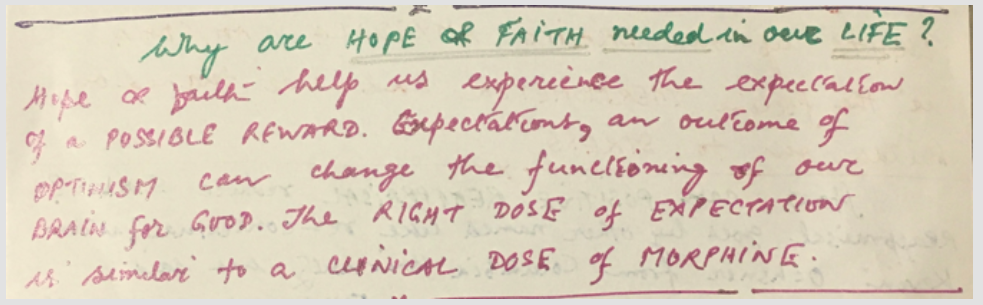 Why are HOPE & FAITH needed in our LIFE ?
Hope & faith help us experience the expectation
of a POSSIBLE REWARD. Expectations, an outcome of
OPTIMISM can change the functioning of our
BRAIN for GOOD. The RIGHT DOSE of EXPECTATION
is similar to a CLINICAL DOSE of MORPHINE.